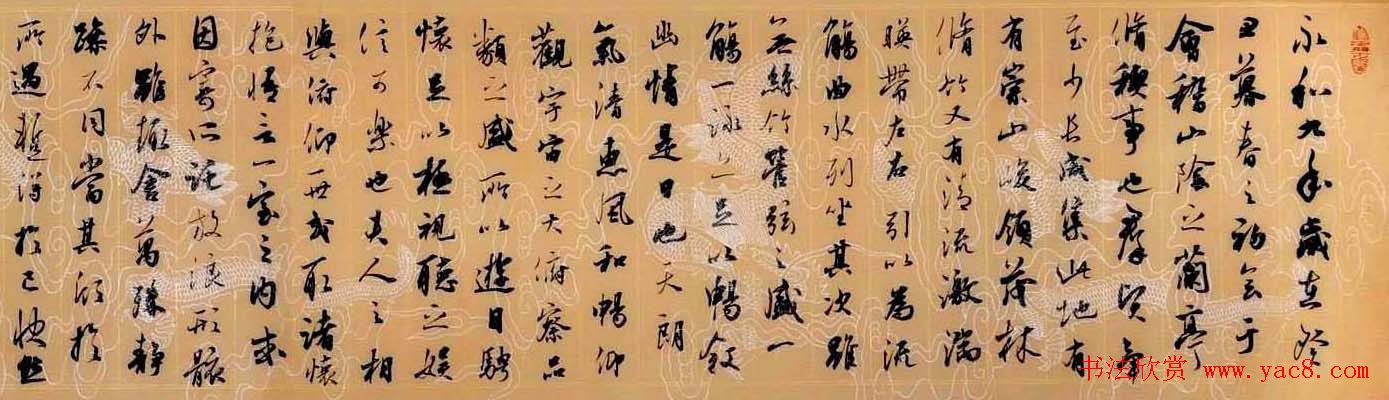 永和九年歲在癸
丑暮春之初會于
會稽山陰之蘭亭
脩稧事也羣賢畢
至少長咸集此地有
有崇山峻領茂林
脩竹又有清流激湍
暎帶左右引以為流
觴曲水列坐其次雖
無絲竹管弦之盛一
觴一詠亦足以暢敘
幽情是日也天朗
氣清惠風和暢仰
觀宇宙之大俯察品
類之盛所以遊目騁
懷足以極視聽之娛
信可樂也夫人之相
與俯仰一世或取諸懷
抱悟言一室之內或
因寄所託放浪形骸
外雖趣舍萬殊靜
躁不同當其欣於
所遇蹔得於己快然
书法欣赏 www.yac8.com